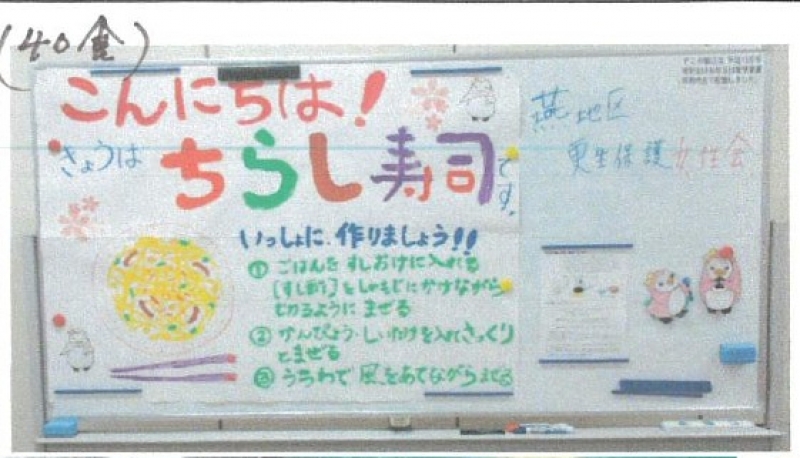 (40食)
こんにちは!
きょうは
ちらし寿司です。
いっしょに、作りましょう!!
① ごはんを すしおけに入れる
[すし酢]をしゃもじにかけながら
きるように まぜる
② かんぴょう・しいたけを入れさっくり
とまぜる
③ うちわで 風をあてながらまぜる
燕地区
更生保護女性会